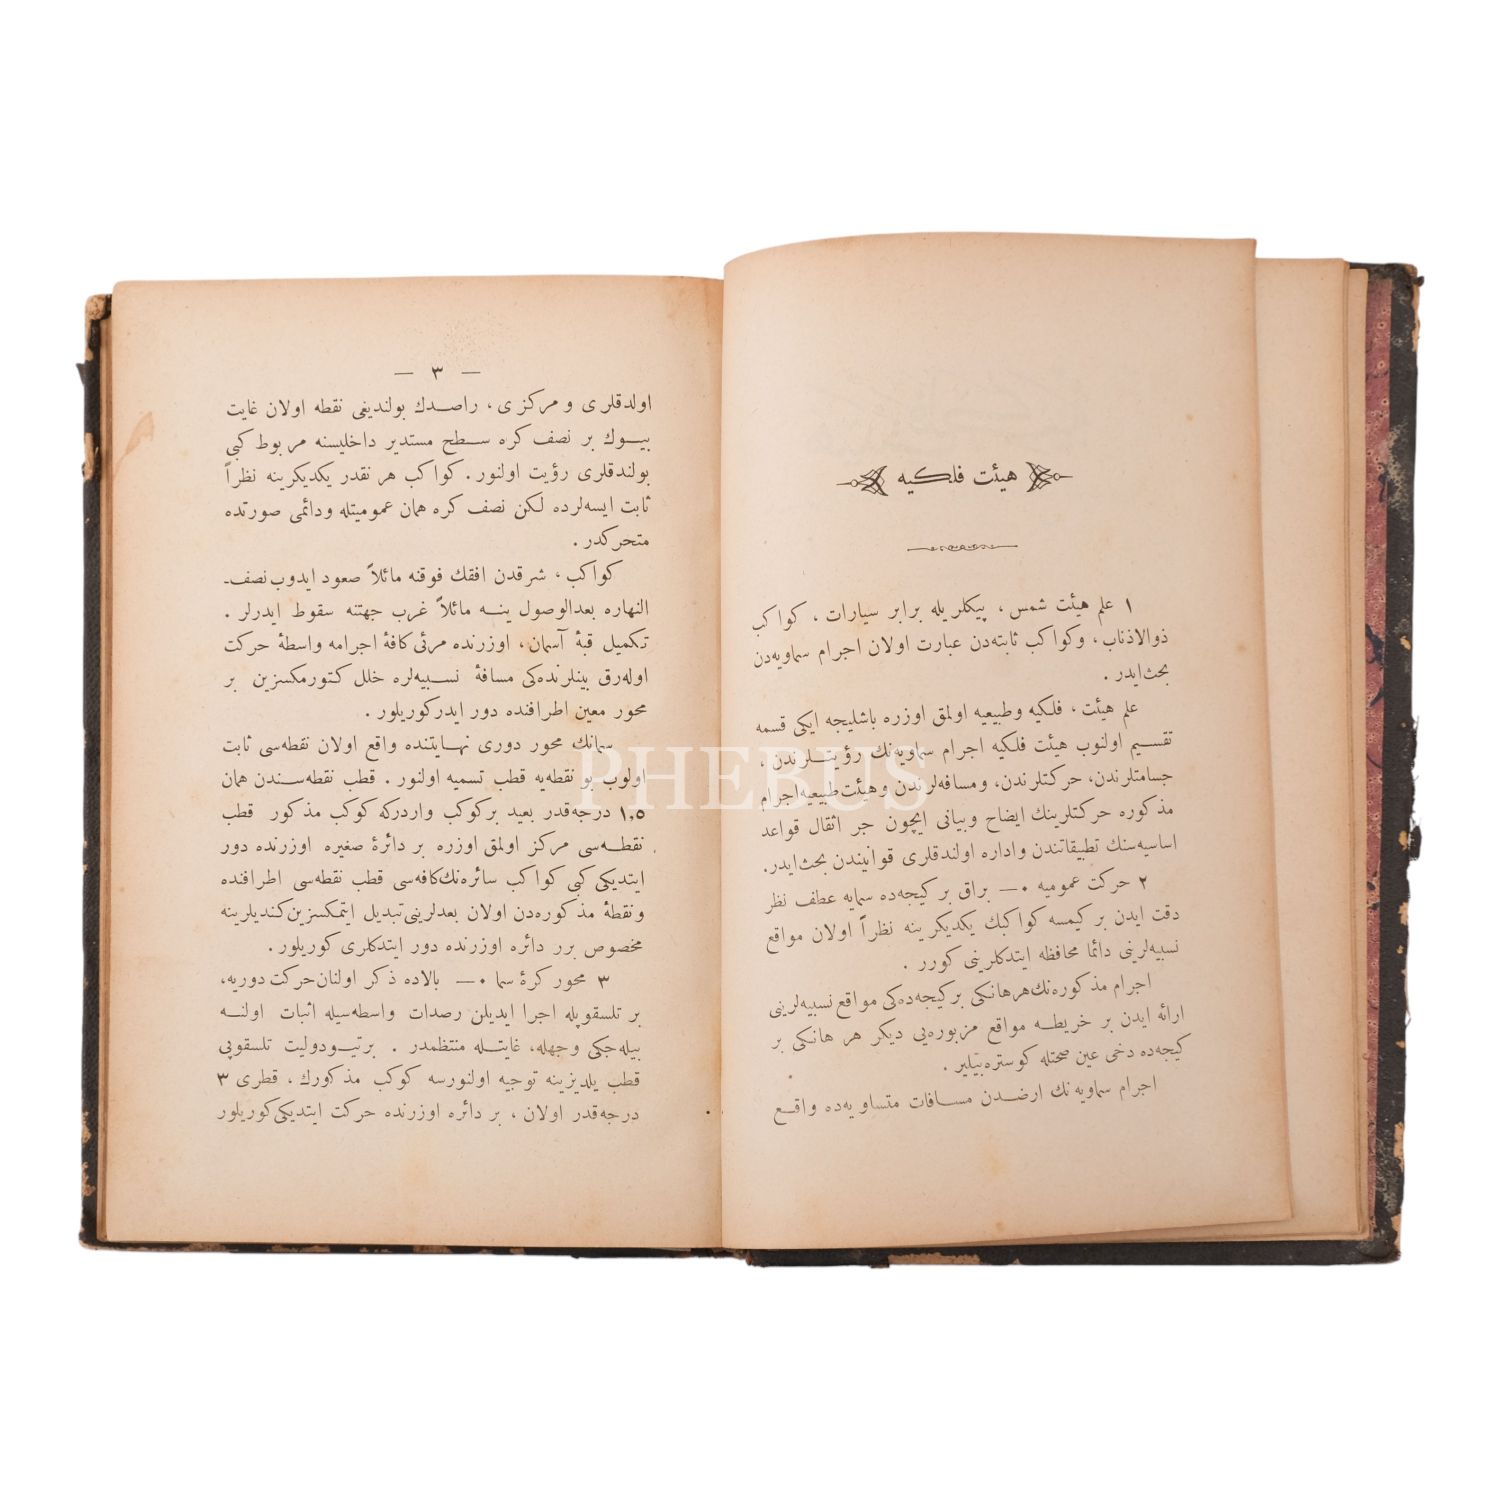 هیئت فلکیه
١ علم هیئت شمس ، پیکلریله برابر سیارات ، کواکب
ذوالاذناب ، وکواکب ثابته‌دن عبارت اولان اجرام سماویه‌دن
بحث ایدر .
علم هیئت ، فلکیه وطبیعیه اولمق اوزره باشلیجه ایکی قسمه
تقسیم اولنوب هیئت فلکیه اجرام سماویه‌نك رؤیتلرندن ،
جسامتلرندن، حرکتلرندن، ومسافه‌لرندن وهیئت طبیعیه اجرام
مذکوره حرکتلرینك ایضاح وبیانی ایچون جر اثقال قواعد
اساسیه‌سنك تطبیقاتندن واداره اولندقلری قوانیندن بحث ایدر.
٢ حرکت عمومیه ٠— براق بر کیجه‌ده سمایه عطف نظر
دقت ایدن بر کیمسه کواکبك یکدیکرینه نظراً اولان مواقع
نسبیه‌لرینی دائما محافظه ایتدکلرینی کورر .
اجرام مذکوره‌نك هر هانکی بر کیجه‌ده‌کی مواقع نسبیه‌لرینی
ارائه ایدن بر خریطه مواقع مزبوره‌یی دیکر هر هانکی بر
کیجه‌ده دخی عین صحتله کوستره‌بیلیر .
اجرام سماویه نك ارضدن مسافات متساویه‌ده واقع
— ٣ —
اولدقلری و مرکزی ، راصدك بولندیغی نقطه اولان غایت
بیوك بر نصف کره سطح مستدیر داخلیسنه مربوط کبی
بولندقلری رؤیت اولنور . کواکب هر نقدر یکدیکرینه نظراً
ثابت ایسه‌لرده لکن نصف کره همان عمومیتله ودائمی صورتده
متحرکدر .
کواکب ، شرقدن افقك فوقنه مائلاً صعود ایدوب نصف-
النهاره بعدالوصول ینه مائلاً غرب جهتنه سقوط ایدرلر .
تکمیل قبهٔ آسمان ، اوزرنده مرئی کافهٔ اجرامه واسطهٔ حرکت
اوله‌رق بینلرنده‌کی مسافهٔ نسبیه‌لره خلل کتورمکسزین بر
محور معین اطرافنده دور ایدر کوریلور .
سمانك محور دوری نهایتنده واقع اولان نقطه‌سی ثابت
اولوب بو نقطه‌یه قطب تسمیه اولنور . قطب نقطه‌سندن همان
١,٥ درجه‌قدر بعید بر کوکب واردرکه کوکب مذکور قطب
نقطه‌سی مرکز اولمق اوزره بر دائرهٔ صغیره اوزرنده دور
ایتدیکی کبی کواکب سائره‌نك کافه‌سی قطب نقطه‌سی اطرافنده
ونقطهٔ مذکوره‌دن اولان بعدلرینی تبدیل ایتمکسزین کندیلرینه
مخصوص برر دائره اوزرنده دور ایتدکلری کوریلور .
٣ محور کرهٔ سما ٠— بالاده ذکر اولنان حرکت دوریه،
بر تلسقوپله اجرا ایدیلن رصدات واسطه‌سیله اثبات اولنه
بیله‌جکی وجهله، غایتله منتظمدر . بر تیودولیت تلسقوپی
قطب یلدیزینه توجیه اولنورسه کوکب مذکورك ، قطری ٣
درجه‌قدر اولان ، بر دائره اوزرنده حرکت ایتدیکی کوریلور
PHEBUS